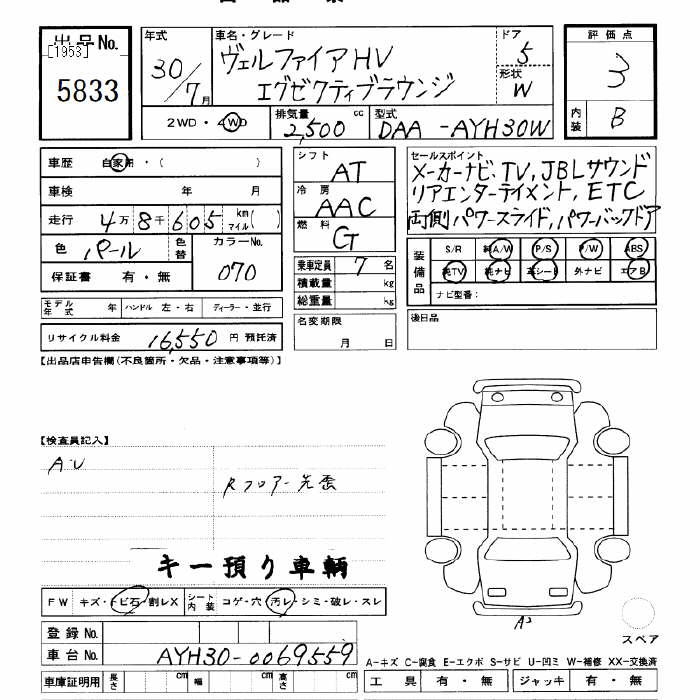 出品No.
[1953]
5833
年式
30/7月
車名・グレード
ヴェルファイアHV
エグゼクティブラウンジ
ドア
5
形状
W
評価点
3
内装
B
2WD・4WD
排気量
2,500 cc
型式
DAA-AYH30W
車歴 自家用・( )
車検 年 月
走行 4万8千605 km マイル( )
色 パール 色替 カラーNo. 070
保証書 有・無
モデル年式 年 ハンドル 左・右 ディーラー・並行
リサイクル料金 16,550 円 預託済
シフト
AT
冷房
AAC
燃料
G
乗車定員 7 名
積載量 kg
総重量 kg
名変期限
月 日
セールスポイント
メーカーナビ、TV、JBLサウンド
リアエンターテイメント、ETC
両側パワースライド、パワーバックドア
装備品
S/R 純A/W P/S P/W ABS
純TV 純ナビ 革シート 外ナビ エアB
ナビ型番:
後日品
【出品店申告欄(不良箇所・欠品・注意事項等)】
【検査員記入】
A・U
Rフロアー先歪
キー預り車輌
FW キズ・トビ石・割レX シート内装 コゲ・穴・汚レ・シミ・破レ・スレ
登録No.
車台No. AYH30-0069559
車庫証明用 長さ cm 幅 cm 高さ cm
A2
スペア
A-キズ C-腐食 E-エクボ S-サビ U-凹ミ W-補修 XX-交換済
工具 有・無 ジャッキ 有・無